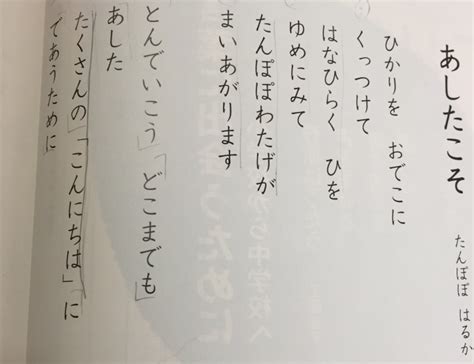 あしたこそ
たんぽぽ はるか
ひかりを おでこに
くっつけて
はなひらく ひを
ゆめにみて
たんぽぽわたげが
まいあがります
とんでいこう「どこまでも」
あした
たくさんの「こんにちは」に
であうために